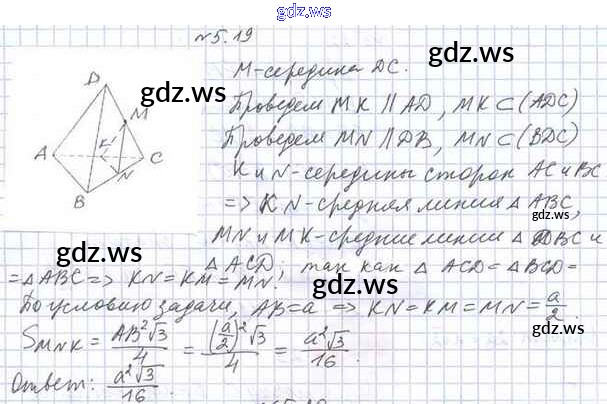 gdz.ws
№5.19
gdz.ws
М-середина DC.
gdz.ws
Проведем MK || AD, MK ⊂ (ADC)
Проведем MN || DB, MN ⊂ (BDC)
K и N-середины сторон AC и BC
=> KN-средняя линия △ ABC,
gdz.ws
MN и MK-средние линии △ DBC и
△ ACD; так как △ ACD = △ BCD =
gdz.ws
= △ ABC => KN = KM = MN.
gdz.ws
По условию задачи, AB = a => KN = KM = MN = a/2.
S MNK = AB²√3/4 = (a/2)²√3/4 = a²√3/16.
gdz.ws
Ответ: a²√3/16.
gdz.ws
D
M
A
K
C
N
B